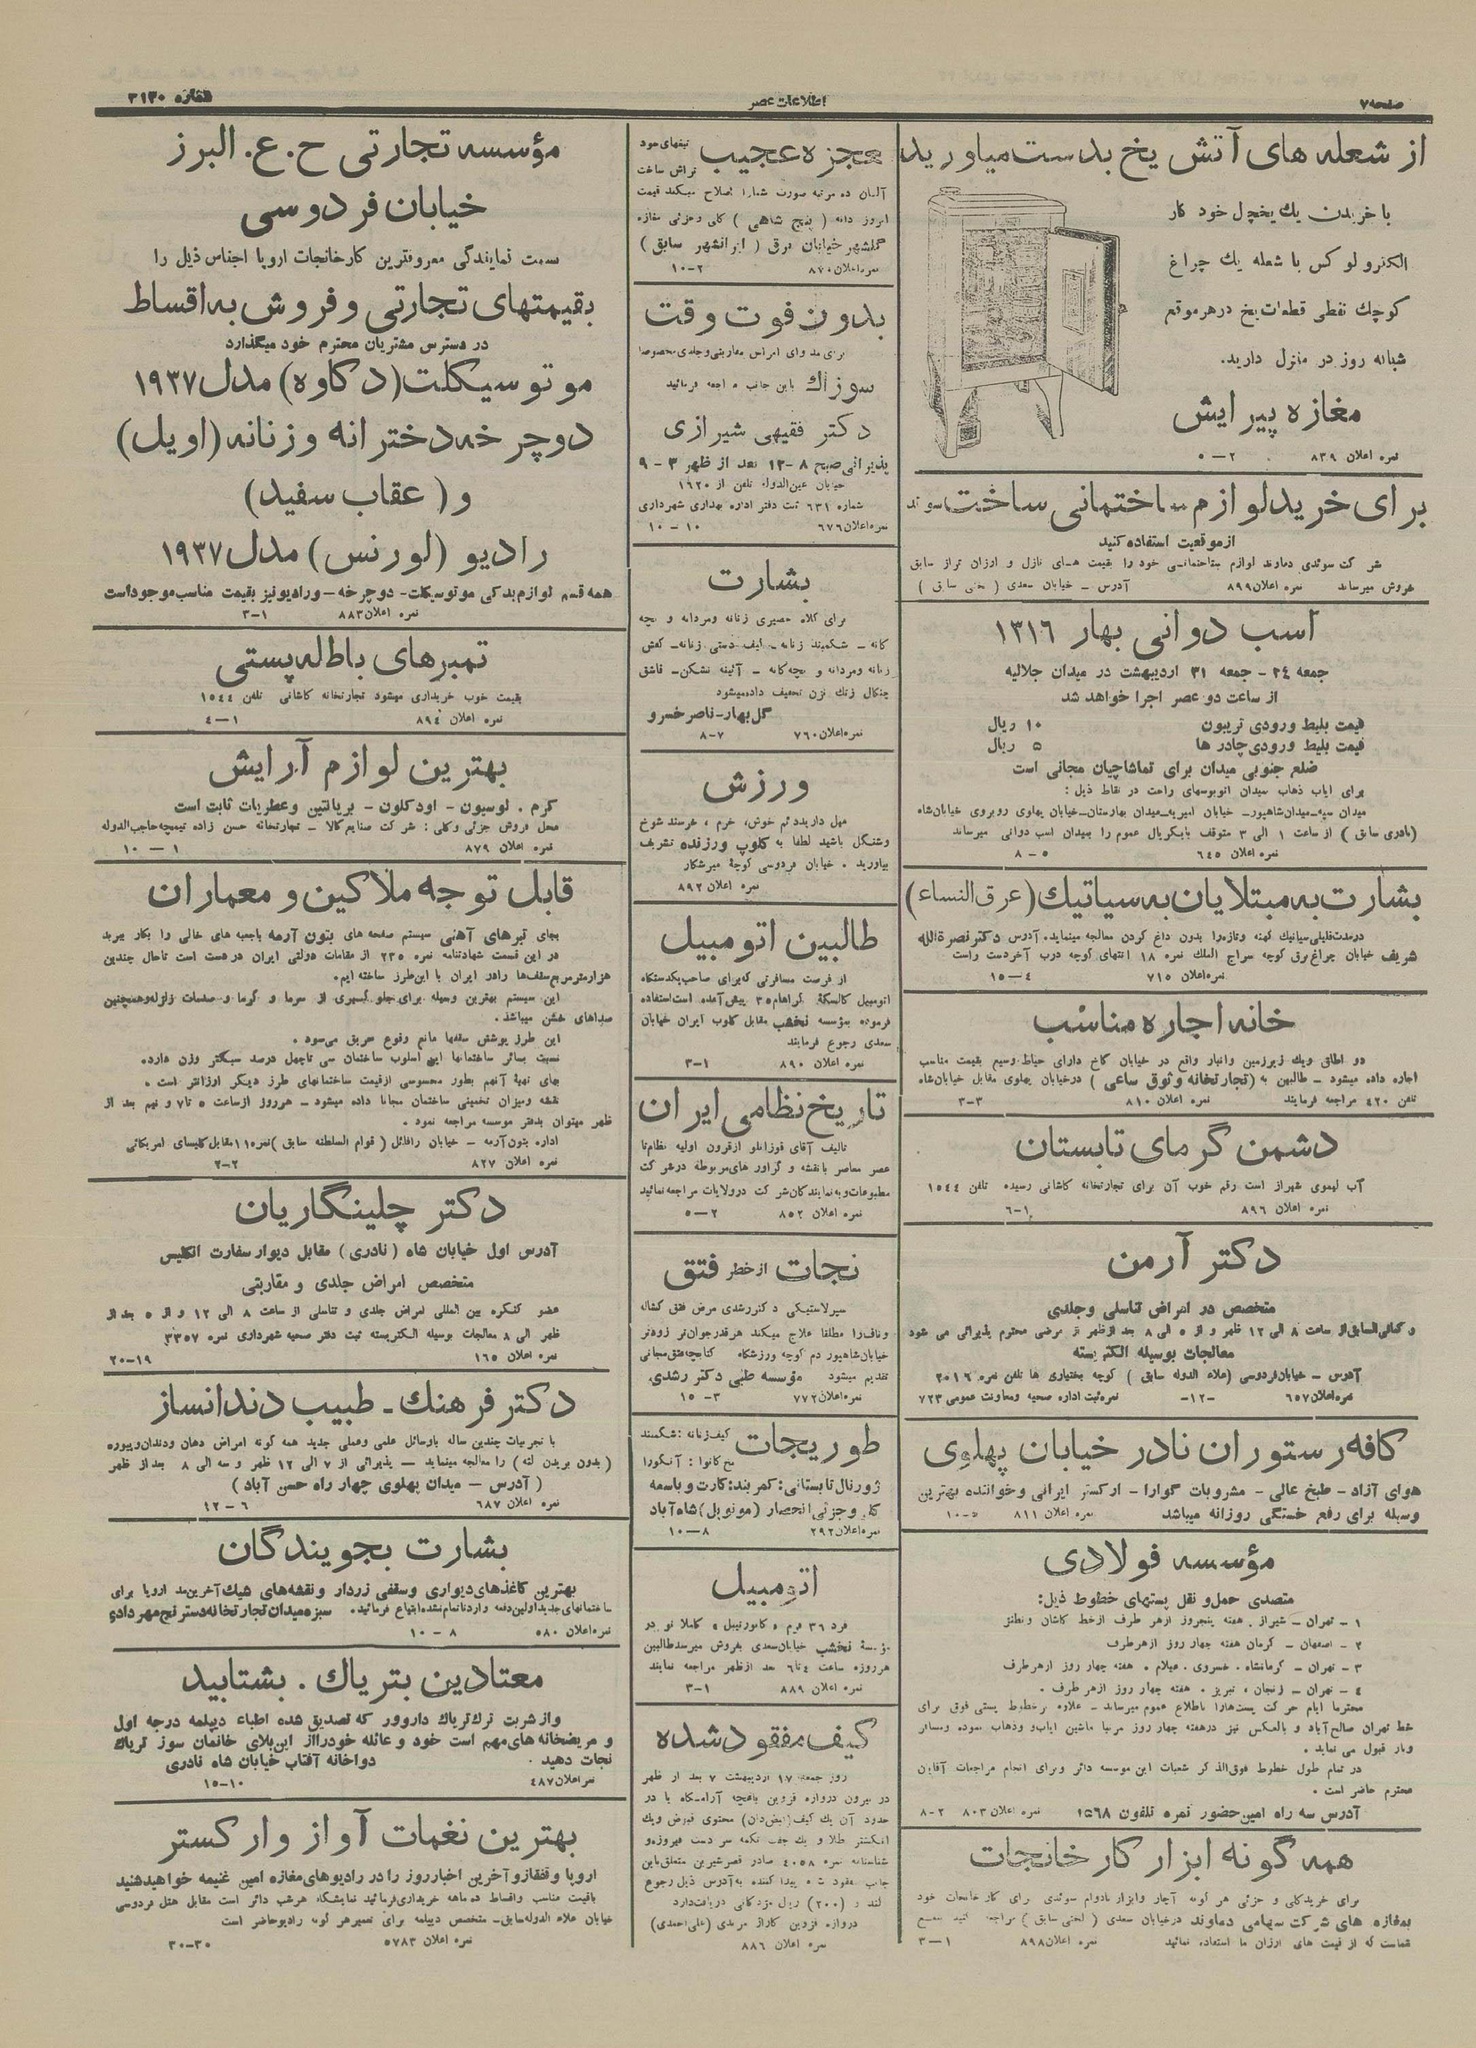 صفحه ۷
اطلاعات عصر
شماره ۳۱۳۰
از شعله های آتش یخ بدست میاورید
با خریدن یك یخچال خود کار
الکترولو کس با شعله یك چراغ
کوچك نفطی قطعات یخ در هر موقع
شبانه روز در منزل دارید.
مغازه پیرایش
نمره اعلان ۸۳۹ ۲—۵
برای خرید لوازم ساختمانی ساخت سوئد
از موقعیت استفاده کنید
شرکت سوئدی دماوند لوازم ساختمانی خود را بقیمت های نازل و ارزان تراز سابق
بفروش میرساند نمره اعلان ۸۹۹ آدرس – خیابان سعدی ( لختی سابق )
اسب دوانی بهار ۱۳۱۶
جمعه ۲۴ – جمعه ۳۱ اردیبهشت در میدان جلالیه
از ساعت دو عصر اجرا خواهد شد
قیمت بلیط ورودی تریبون ۱۰ ریال
قیمت بلیط ورودی چادر ها ۵ ریال
ضلع جنوبی میدان برای تماشاچیان مجانی است
برای ایاب ذهاب میدان اتوبوسهای راحت در نقاط ذیل :
میدان سپه–میدان شاهپور– خیابان امیریه–میدان بهارستان–خیابان پهلوی روبروی خیابان شاه
(نادری سابق ) از ساعت ۱ الی ۳ متوقف بایکریال عموم را بمیدان اسب دوانی میرساند
نمره اعلان ۶۴۵ ۵ – ۸
بشارت به مبتلایان به سیاتیك (عرق النساء)
در مدت قلیلی سیاتیك کهنه و تازه را بدون داغ کردن معالجه مینماید. آدرس دکتر نصرة الله
شریف خیابان چراغ برق کوچه سراج الملك نمره ۱۸ انتهای کوچه درب آخر دست راست
نمره اعلان ۷۱۵ ۴–۱۵
خانه اجاره مناسب
دو اطاق ویك زیرزمین و انبار واقع در خیابان کاخ دارای حیاط وسیع بقیمت مناسب
اجاره داده میشود – طالبین به (تجارتخانه وثوق ساعی ) در خیابان پهلوی مقابل خیابان شاه
تلفن ۴۲۰ مراجعه فرمایند نمره اعلان ۸۱۰ ۳–۳
دشمن گرمای تابستان
آب لیموی شیراز است رقم خوب آن برای تجارتخانه کاشانی رسیده تلفن ۱۵۴۴
نمره اعلان ۸۹۶ ۱–۶
دکتر آرمن
متخصص در امراض تناسلی و جلدی
و کمافی السابق از ساعت ۸ الی ۱۲ ظهر و از ۵ الی ۸ بعد از ظهر از مرضی محترم پذیرائی می شود
معالجات بوسیله الکتریسته
آدرس – خیابان فردوسی (علاء الدوله سابق ) کوچه بختیاری ها تلفن نمره ۲۰۱۶
نمره اعلان ۶۵۷ –۱۲– نمره ثبت اداره صحیه و معاونت عمومی ۷۲۳
کافه رستوران نادر خیابان پهلوی
هوای آزاد – طبخ عالی – مشروبات گوارا – ارکستر ایرانی و خواننده بهترین
وسیله برای رفع خستگی روزانه میباشد نمره اعلان ۸۱۱ ۵–۱۰
مؤسسه فولادی
متصدی حمل و نقل پستهای خطوط ذیل:
۱ – تهران – شیراز . هفته پنجروز از هر طرف از خط کاشان و نطنز
۲ – اصفهان – کرمان هفته چهار روز از هر طرف
۳ – تهران – کرمانشاه . خسروی . عیلام . هفته چهار روز از هر طرف
۴ – تهران – زنجان ، تبریز . هفته چهار روز از هر طرف .
محترما ایام حرکت پست ها را باطلاع عموم میرساند – علاوه بر خطوط پستی فوق برای
خط تهران صالح آباد و بالعکس نیز در هفته چهار روز مرتبا ماشین ایاب و ذهاب نموده و مسافر
وبار قبول می نماید .
در تمام طول خطوط فوق الذکر شعبات این موسسه دائر و برای انجام مراجعات آقایان
محترم حاضر است .
آدرس سه راه امین حضور نمره تلفون ۱۵۶۸ نمره اعلان ۸۰۳ ۲–۸
همه گونه ابزار کار خانجات
برای خرید کلی و جزئی هر گونه آچار و ابزار بادوام سوئدی برای کارخانجات خود
بمغازه های شرکت سهامی دماوند در خیابان سعدی ( لختی سابق ) مراجعه کنید بنفع
شماست که از قیمت های ارزان ما استفاده نمائید نمره اعلان ۸۹۸ ۱—۳
معجزه عجیب تیغهای خود
تراش ساخت
آلمان ده مرتبه صورت شما را اصلاح میکند قیمت
امروز دانه ( پنج شاهی ) کلی و جزئی مغازه
گلشهر خیابان برق ( ایرانشهر سابق )
نمره اعلان ۸۷۰ ۲–۱۰
بدون فوت وقت
برای مداوای امراض مقاربتی و جلدی مخصوصا
سوزاك باین جانب مراجعه فرمائید
دکتر فقیهی شیرازی
پذیرائی صبح ۸ – ۱۲ بعد از ظهر ۳ – ۹
خیابان عین الدوله تلفن از ۱۶۲۰
شماره ۶۳۱ ثبت دفتر اداره بهداری شهرداری
نمره اعلان ۶۷۶ ۱۰ – ۱۰
بشارت
برای کلاه حصیری زنانه و مردانه و بچه
گانه – شکمبند زنانه – کیف دستی زنانه– کفش
زنانه و مردانه و بچه گانه – آئینه نشکن– قاشق
چنگال زنك نزن تخفیف داده میشود
گل بهار– ناصر خسرو
نمره اعلان ۷۶۰ ۷–۸
ورزش
میل دارید دائم خوش، خرم ، خرسند شوخ
وشنگل باشید لطفا به کلوپ ورزنده تشریف
بیاورید . خیابان فردوسی کوچه میرشکار
نمره اعلان ۸۹۲
طالبین اتومبیل
از فرصت مسافرتی که برای صاحب یکدستگاه
اتومبیل کالسکه گراهام ۳۵ پیش آمده است استفاده
فرموده بمؤسسه نخشب مقابل کلوب ایران خیابان
سعدی رجوع فرمایند
نمره اعلان ۸۹۰ ۱–۳
تاریخ نظامی ایران
تالیف آقای قوزانلو از قرون اولیه نظام تا
عصر معاصر با نقشه و گراور های مربوطه در شرکت
مطبوعات و به نمایندگان شرکت در ولایات مراجعه نمائید
نمره اعلان ۸۵۲ ۲–۵
نجات از خطر فتق
سیر لاستیکی دکتر رشدی مرض فتق کشاله
وناف را مطلقا علاج میکند هر قدر جوانتر زودتر
خیابان شاهپور دم کوچه ورزشگاه کتابچه فتق مجانی
تقدیم میشود مؤسسه طبی دکتر رشدی.
نمره اعلان ۷۷۲ ۳– ۱۵
طوریجات کیف زنانه : شکمبند
نخ کانوا : آنگورا
ژورنال تابستانی: کمربند: کارت و باسمه
کلی و جزئی انحصار (مونوپل) شاه آباد
نمره اعلان ۲۹۲ ۸—۱۰
اتومبیل
فرد ۳۶ فرم ۵ کاملا نو در
مؤسسه نخشب خیابان سعدی بفروش میرسد طالبین
هر روزه ساعت ۴ تا ۶ بعد از ظهر مراجعه نمایند
نمره اعلان ۸۸۹ ۱–۳
کیف مفقود شده
روز جمعه ۱۷ اردیبهشت ۷ بعد از ظهر
در بیرون دروازه قزوین باغچه آرامگاه یا در
حدود آن یك کیف محتوی قبوض ویك
انگشتر طلا و یك جفت تکمه سر دست فیروزه و
شناسنامه نمره ۴۰۵۸ صادر قصر شیرین متعلق باین
جانب مفقود شده پیدا کننده به آدرس ذیل رجوع
کند و (۲۰۰) ریال مژدگانی دریافت دارد
دروازه قزوین کاراژ مرندی (علی احمدی)
نمره اعلان ۸۸۶
مؤسسه تجارتی ح . ع . البرز
خیابان فردوسی
سمت نمایندگی معروفترین کارخانجات اروپا اجناس ذیل را
بقیمتهای تجارتی و فروش به اقساط
در دسترس مشتریان محترم خود میگذارد
موتوسیکلت (دکاوه) مدل ۱۹۳۷
دوچرخه دخترانه و زنانه (اوپل)
و ( عقاب سفید)
رادیو (لورنس) مدل ۱۹۳۷
همه قسم لوازم یدکی موتوسیکلت– دوچرخه – ورادیو نیز بقیمت مناسب موجود است
نمره اعلان ۸۸۳ ۱–۳
تمبرهای باطله پستی
بقیمت خوب خریداری میشود تجارتخانه کاشانی تلفن ۱۵۴۴
نمره اعلان ۸۹۴ ۱—۴
بهترین لوازم آرایش
کرم . لوسیون – اودکلون – بریانتین و عطریات ثابت است
محل فروش جزئی و کلی : شرکت صنایع کالا – تجارتخانه حسن زاده تیمچه حاجب الدوله
نمره اعلان ۸۷۹ ۱ — ۱۰
قابل توجه ملاکین و معماران
بجای تیرهای آهنی سیستم صفحه های بتون آرمه باجعبه های خالی را بکار ببرید
در این قسمت شهادتنامه نمره ۲۳۵ از مقامات دولتی ایران در دست است تاحال چندین
هزار متر مربع سقف ها را در ایران با این طرز ساخته ایم.
این سیستم بهترین وسیله برای جلوگیری از سرما و گرما و صدمات زلزله و همچنین
صداهای خشن میباشد .
این طرز پوشش سقفها مانع وقوع حریق می‌شود .
نسبت بسائر ساختمانها این اسلوب ساختمان سی تا چهل درصد سبکتر وزن دارد.
بهای تهیهٔ آنهم بطور محسوسی از قیمت ساختمانهای طرز دیگر ارزانتر است .
نقشه و میزان تخمینی ساختمان مجانا داده میشود – هر روز از ساعت ۵ تا ۷ و نیم بعد از
ظهر میتوان بدفتر موسسه مراجعه نمود .
اداره بتون آرمه – خیابان رافائل ( قوام السلطنه سابق ) نمره ۱۱ مقابل کلیسای امریکائی
نمره اعلان ۸۲۷ ۲–۲
دکتر چلینگاریان
آدرس اول خیابان شاه (نادری) مقابل دیوار سفارت انگلیس
متخصص امراض جلدی و مقاربتی
عضو کنگره بین المللی امراض جلدی و تناسلی از ساعت ۸ الی ۱۲ و از ۵ بعد از
ظهر الی ۸ معالجات بوسیله الکتریسته ثبت دفتر صحیه شهرداری نمره ۳۳۵۷
نمره اعلان ۱۶۵ ۱۹–۲۰
دکتر فرهنك – طبیب دندانساز
با تجربیات چندین ساله با وسائل علمی و عملی جدید همه گونه امراض دهان و دندان و پیوره
(بدون بریدن لثه ) را معالجه مینماید — پذیرائی از ۷ الی ۱۲ ظهر و سه الی ۸ بعد از ظهر
( آدرس — میدان پهلوی چهار راه حسن آباد )
نمره اعلان ۶۸۷ ۶ – ۱۲
بشارت بجویندگان
بهترین کاغذهای دیواری و سقفی زردار و نقشه های شیك آخرین مد اروپا برای
ساختمانهای جدید اولین دفعه وارد تا تمام نشده ابتیاع فرمائید. سبزه میدان تجارتخانه دسترنج مهردادی
نمره اعلان ۵۸۰ ۸ – ۱۰
معتادین بتریاك . بشتابید
واز شربت ترك تریاك داروور که تصدیق شده اطباء دیپلمه درجه اول
و مریضخانه های مهم است خود و عائله خود را از این بلای خانمان سوز تریاك
نجات دهید . دواخانه آفتاب خیابان شاه نادری
نمره اعلان ۴۸۷ ۱۰–۱۵
بهترین نغمات آواز و ارکستر
اروپا و قفقاز و آخرین اخبار روز را در رادیوهای مغازه امین غنیمه خواهید شنید
باقیمت مناسب و اقساط ده ماهه خریداری فرمائید نمایشگاه هر شب دائر است مقابل هتل فردوسی
خیابان علاء الدوله سابق– متخصص دیپلمه برای تعمیر هر گونه رادیو حاضر است
نمره اعلان ۵۷۸۳ ۳۰–۳۰